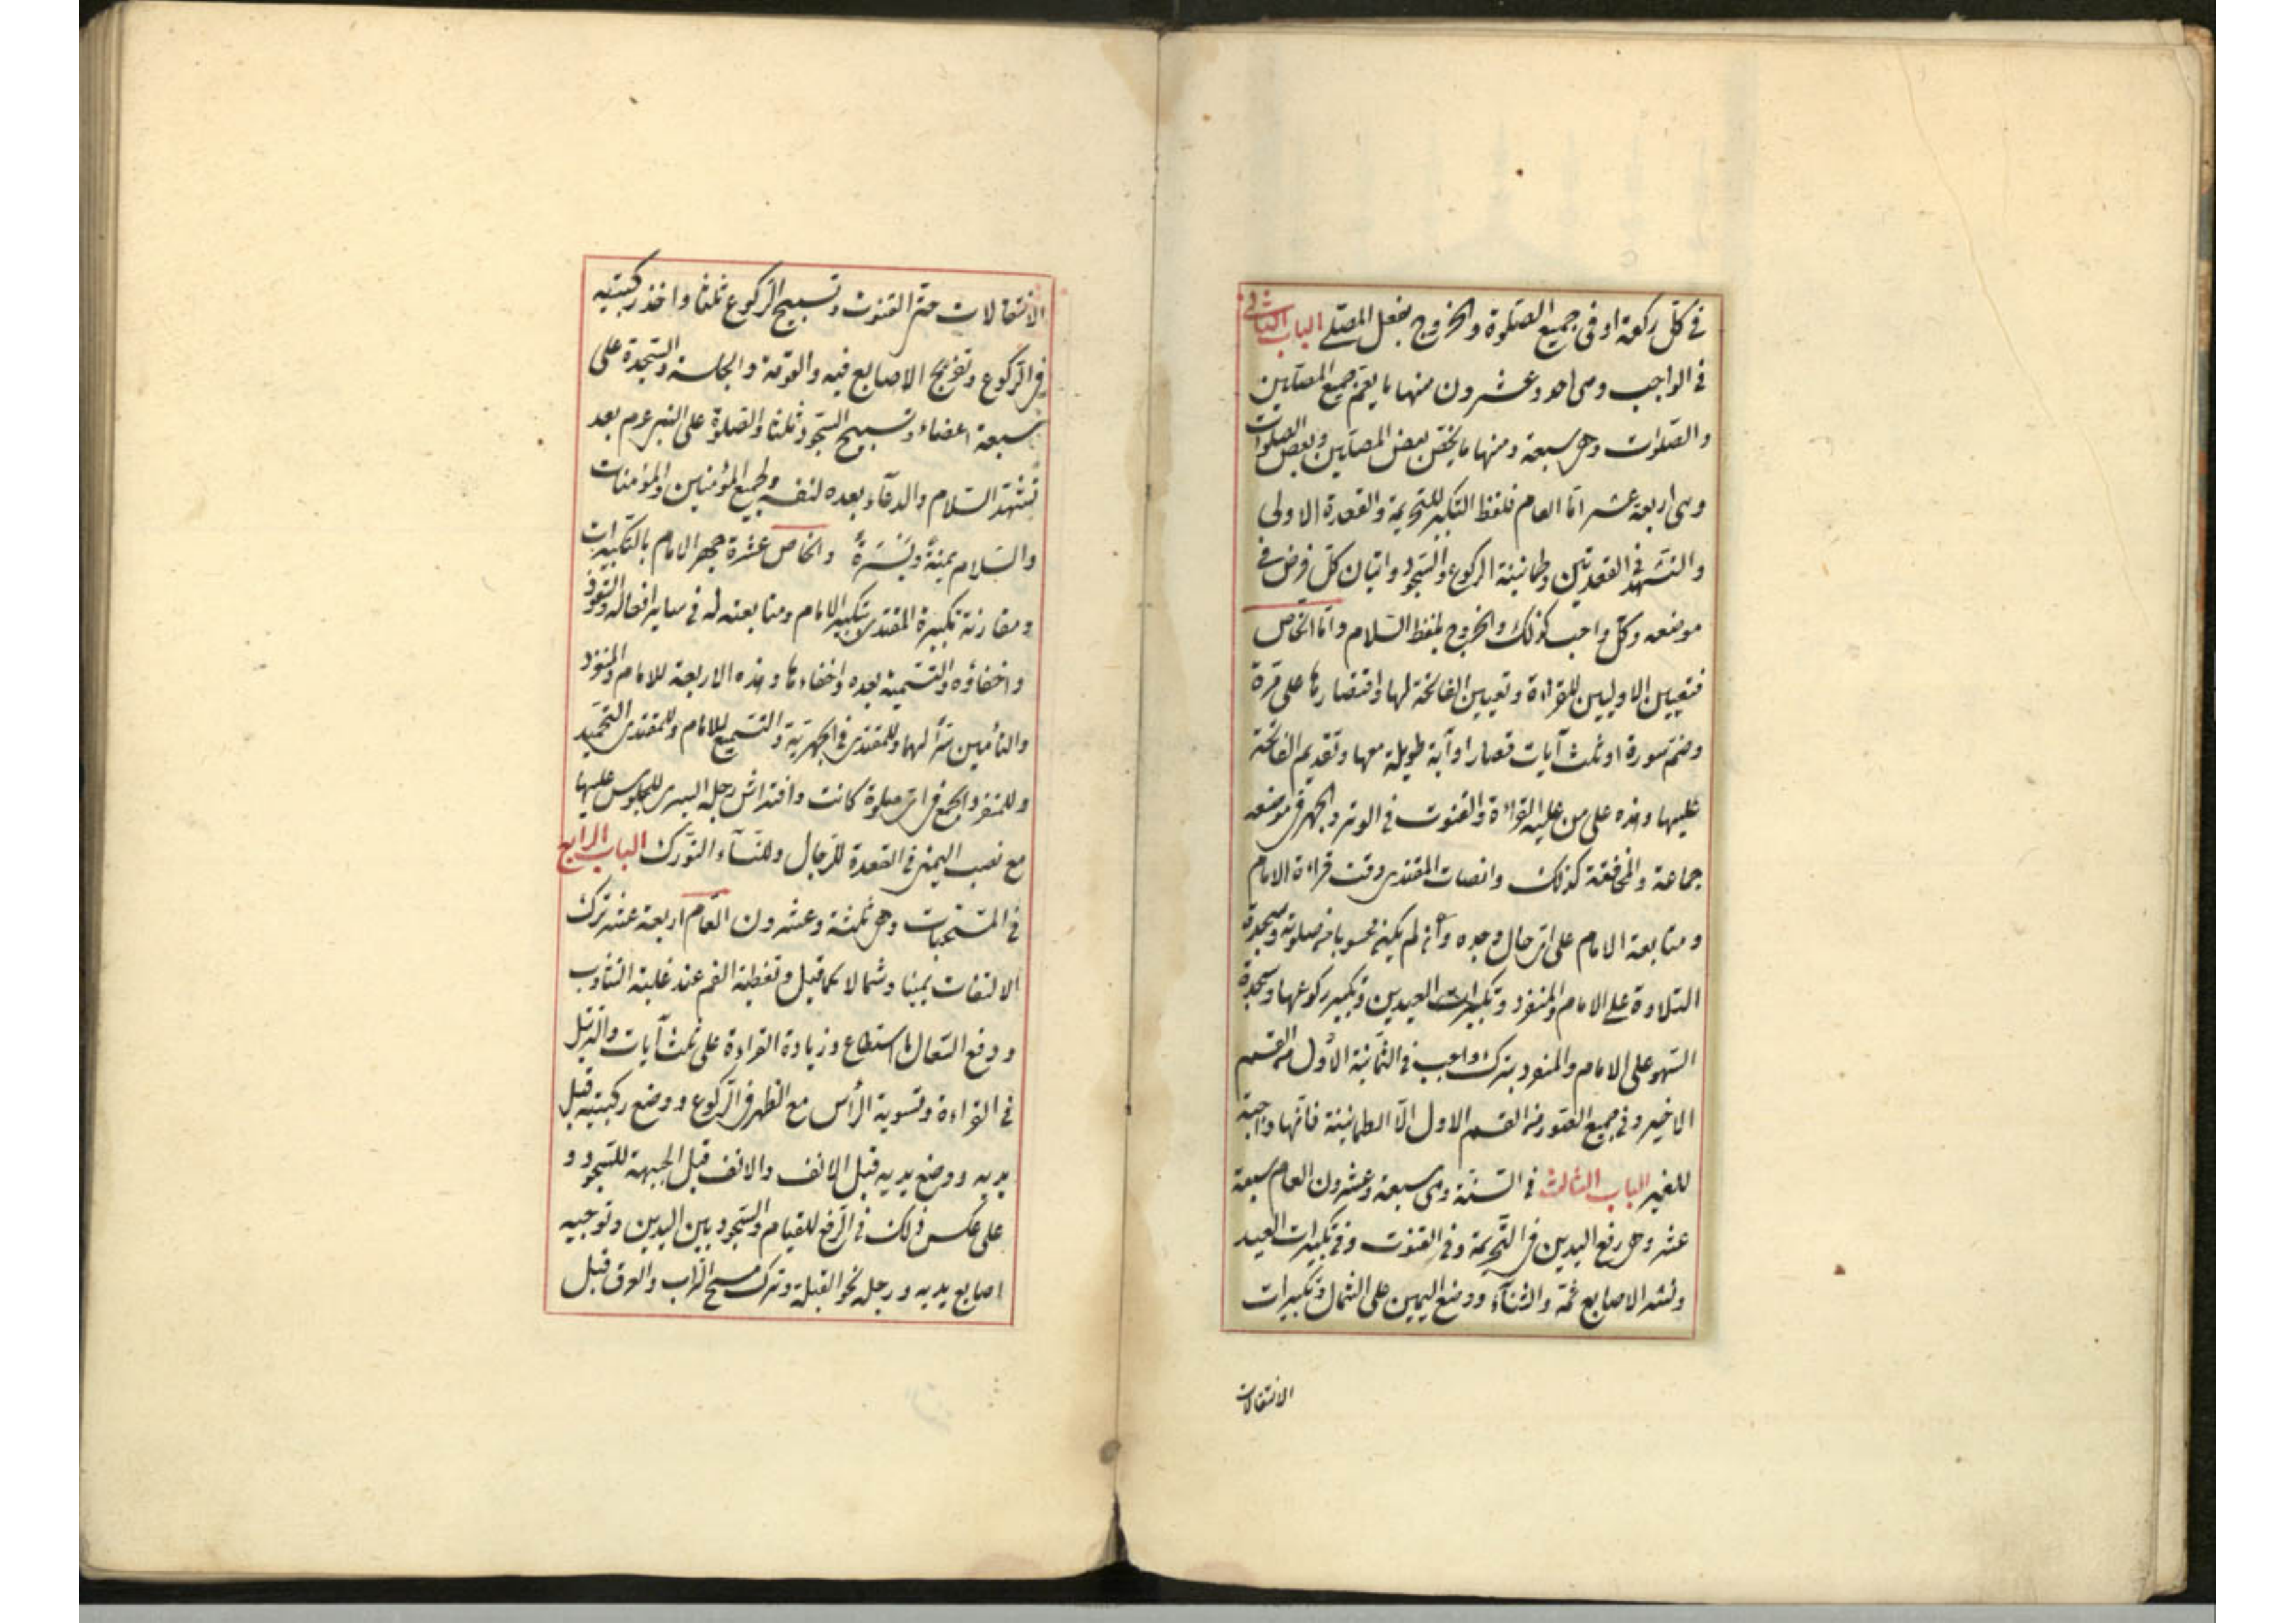 في كل ركعة او في جميع الصلوة والخروج بفعل المصلي الباب الثاني
في الواجب وهى احد وعشرون منها ما يعم جميع المصلين
والصلوات وهى سبعة ومنها ما يختص ببعض المصلين وبعض الصلوات
وهى اربعة عشر اما العام فلفظ التكبير للتحريمة والقعدة الاولى
والتشهد في القعدتين وطمانينة الركوع والسجود واتيان كل فرض في
موضعه وكل واجب كذلك والخروج بلفظ السلام واما الخاص
فتعيين الاوليين للقراءة وتعيين الفاتحة لها واقتصارها على مرة
وضم سورة او ثلث آيات قصار او آية طويلة معها وتقديم الفاتحة
عليها وهذه على من عليه القراءة والقنوت في الوتر والجهر في موضعه
جماعة والمخافتة كذلك وانصات المقتدى وقت قراءة الامام
ومتابعة الامام على اى حال وجده وان لم يكن محسوبا من صلوته وسجدة
التلاوة على الامام والمنفرد وتكبيرات العيدين وتكبير ركوعها وسجدة
السهو على الامام والمنفرد بترك واجب في الثمانية الأول من القسم
الاخير وفي جميع الصور من القسم الاول الا الطمانينة فانها واجبة
للغير الباب الثالث في السنة وهى سبعة وعشرون العام سبعة
عشر وهى رفع اليدين في التحريمة وفي القنوت وفي تكبيرات العيد
ونشر الاصابع ثمة والثناء ووضع اليمين على الشمال وتكبيرات
الانتقالات
الانتقالات حتى القنوت وتسبيح الركوع ثلثا واخذ ركبتيه
في الركوع وتفريج الاصابع فيه والقومة والجلسة والسجدة على
سبعة اعضاء وتسبيح السجود ثلثا والصلوة على النبى عم بعد
تشهد السلام والدعاء بعده لنفسه ولجميع المؤمنين والمؤمنات
والسلام يمنةً ويسرةً والخاص عشرة جهر الامام بالتكبيرات
ومقارنة تكبيرة المقتدى بتكبير الامام ومتابعته له في ساير افعاله والتعوذ
واخفاؤه والتسمية بعده واخفاءها وهذه الاربعة للامام والمنفرد
والتأمين سرا لهما وللمقتدى في الجهرية والتسميع للامام وللمقتدى التحميد
وللمنفرد الجمع في اى صلوة كانت وافتراش رجله اليسرى للجلوس عليها
مع نصب اليمنى في القعدة للرجال وللنساء التورك الباب الرابع
في المستحبات وهى ثلثة وعشرون العام اربعة عشر ترك
الالتفات يمينا وشمالا كما قيل وتغطية الفم عند غلبة التثاوب
ودفع السعال ما استطاع وزيادة القراءة على ثلث آيات والترتيل
في القراءة وتسوية الرأس مع الظهر في الركوع ووضع ركبتيه قبل
يديه ووضع يديه قبل الانف والانف قبل الجبهة للسجود و
على عكس ذلك في الرفع للقيام والسجود بين اليدين وتوجيه
اصابع يديه ورجليه نحو القبلة وترك مسح التراب والعرق قبل